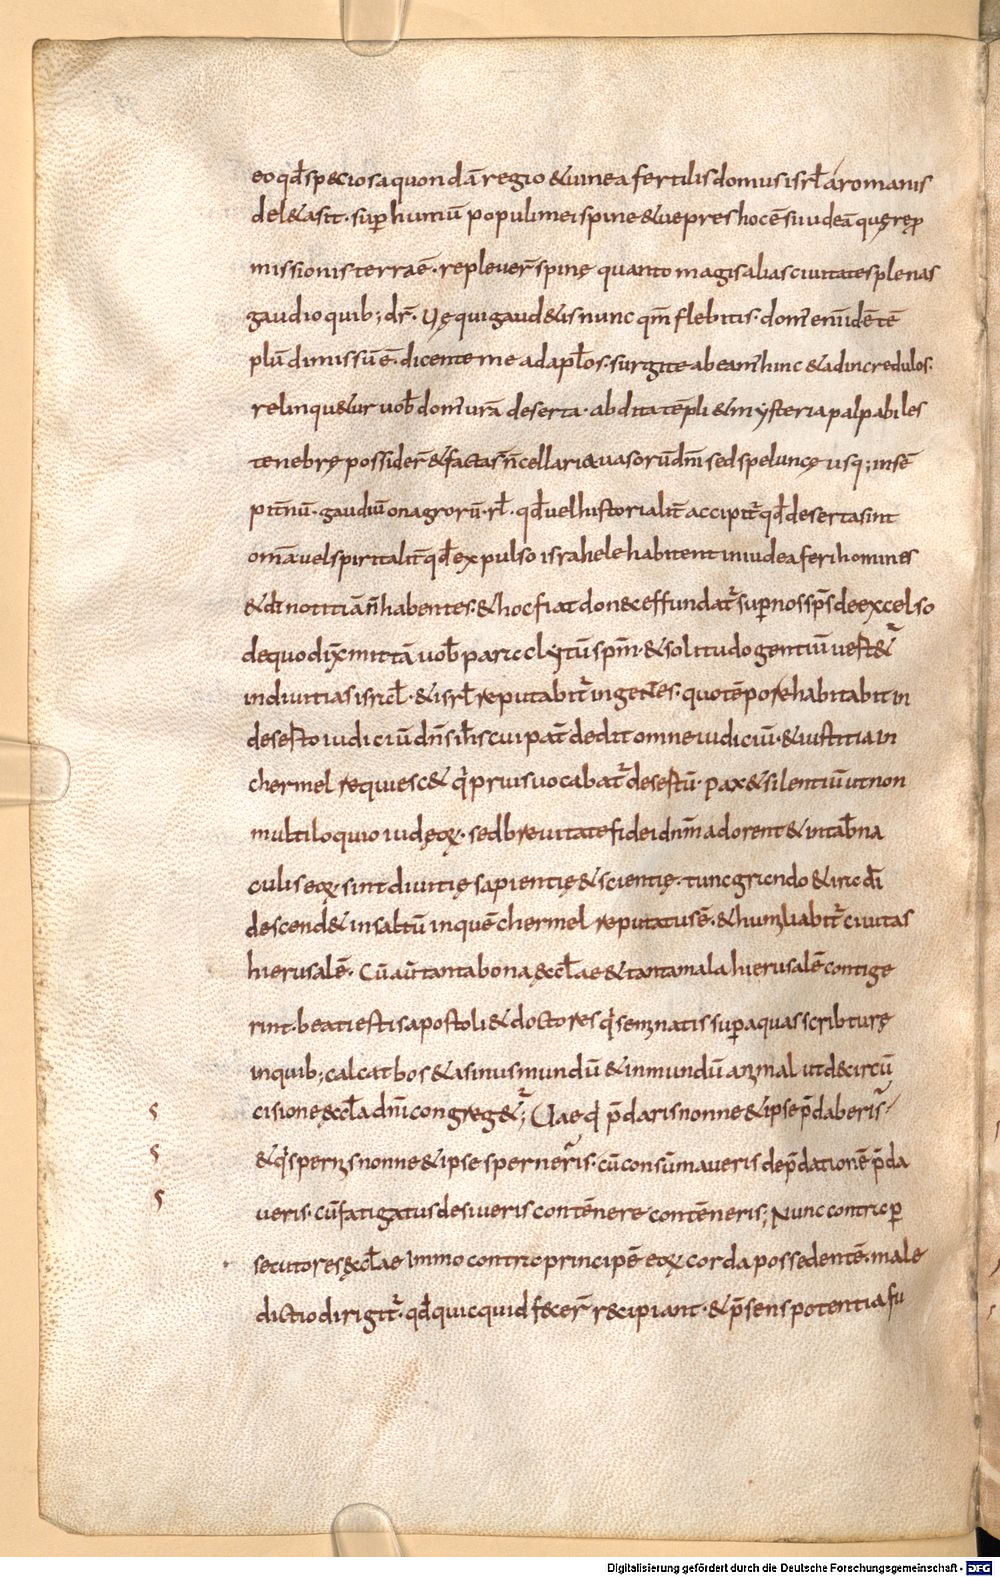 eo qđ speciosa quondā regio & uinea fertilis domus isrł a romanis
del&a sit · sup humū populi mei spine & uepres hoc ē sup iudeā quę rep̄
missionis terra ē · repleuer̄ spinę quanto magis alias ciuitates plenas
gaudio quib; dr̄ · Uę qui gaud&is nunc qm̄ flebitis · dom' enī idē tē
plū dimissū ē · dicente me ad apłos · surgite abeam' hinc & ad incredulos ·
relinqu&ur uob dom' urā deserta · abdita tēpli & mysteria palpabiles
tenebrę possider̄ & facta s̄ n̄ cellaria uasorū dn̄i sed speluncę usq; in sē
pit̄nū · gaudiū onagrorū · rł · qđ uel historialit̄ accipit' qđ deserta sint
om̄a uel spiritalit̄ qđ expulso israhele habitent in iudea feri homines
& dī notitiā n̄ habentes · & hoc fiat donec effundat' sup nos sps̄ de excelso
de quo dix̄ mittā uob paraclytū spm̄ · & solitudo gentiū uert&'
in diuitias israel · & isrł reputabit' in gentes · quo tēpore habitabit in
deserto iudiciū dn̄s ih̄s cui pat̄ dedit omne iudiciū · & iustitia in
chermel requiesc& q' prius uocabat' desertū · pax & silentiū ut non
multiloquio iudęoꝝ · sed breuitate fidei dn̄m adorent & in tab̄na
culis eoꝝ · sint diuitię sapientię & scientię · tunc grando & ira dī
descend& in saltū in quē chermel reputatus ē · & humiliabit' ciuitas
hierusalē · Cū aut̄ tanta bona ęccłae & tanta mala hierusalē contige
rint · beati estis apostoli & doctores q' seminatis sup aquas scribturę
in quib; calcat bos & asinus mundū & inmundū animal ut de circū
cisione ęccła dn̄i congreg&'; Uae q' p̄daris nonne & ipse p̄daberis
& q' spernis nonne & ipse sperneris · cū consūmaueris dep̄dationē p̄da
ueris · cū fatigatus desiueris contēnere contēneris; Nunc contra p
secutores ęccłae immo contra principē eoꝝ corda possedentē · male
dictio dirigit' · qđ quicquid fecer̄ recipiant · & p̄sens potentia fu
s
s
s
Digitalisierung gefördert durch die Deutsche Forschungsgemeinschaft - DFG